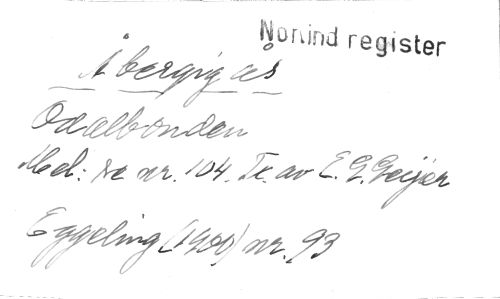 Norsind register
Å bergig ås
Odalbonden
Mel: se nr. 104. Tx. av E. G. Geijer
Eggeling (1900) nr. 93